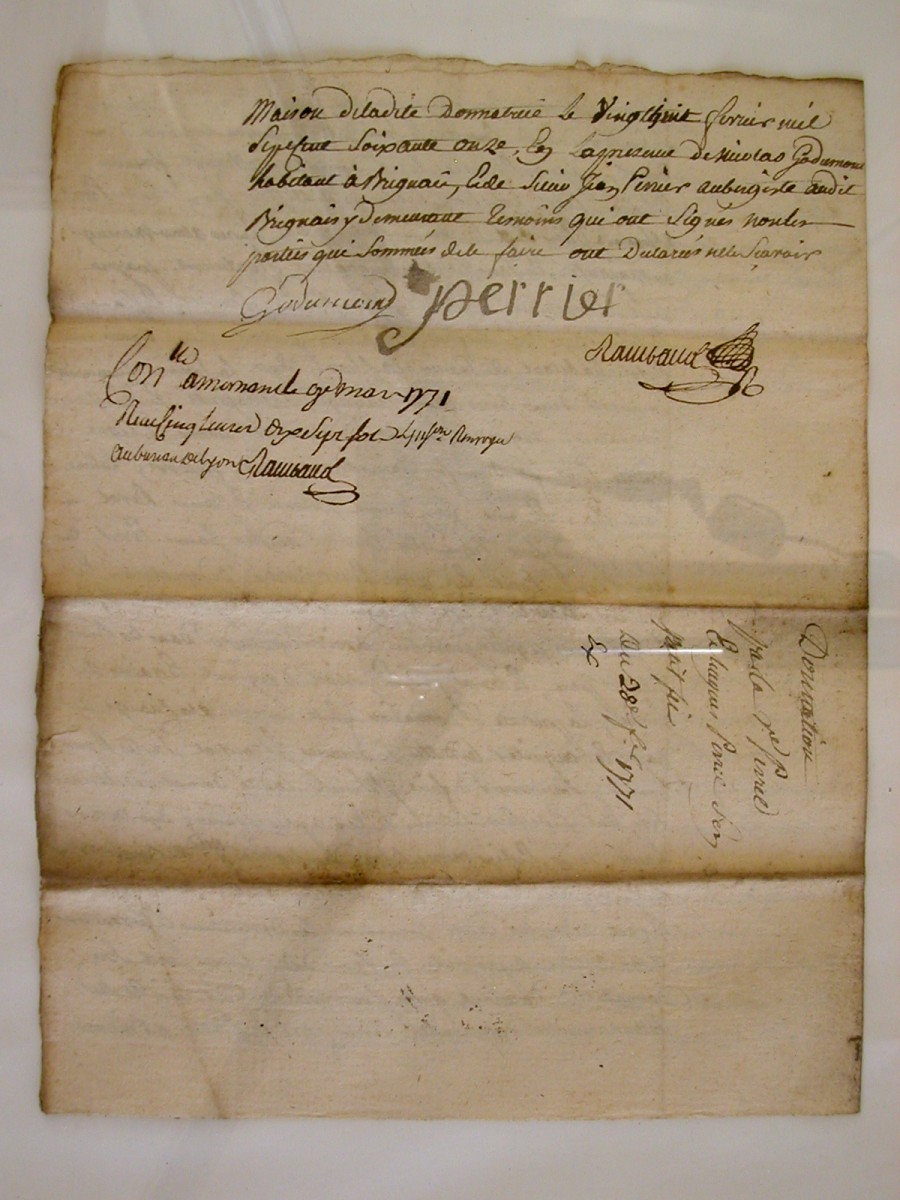 Maison deladite Donnatrice le Vingthuit fevrier mil
Septcent Soixante onze, En lapresence de Nicolas Godumond
habitant à Brignais, Et de Sieur Jean Perrier aubergiste audit
Brignais y demeurant temoins qui ont Signés nonles
parties qui Sommées dele faire ont Declarés nele Scavoir
Godumond Perrier
Rambaud
Con.lle 1771
Receu Cinq livres Dixsept sols
aubureau delyon Rambaud
Donnation
par la ve Perricel
petit fils
Du 28e f.r 1771
Ex